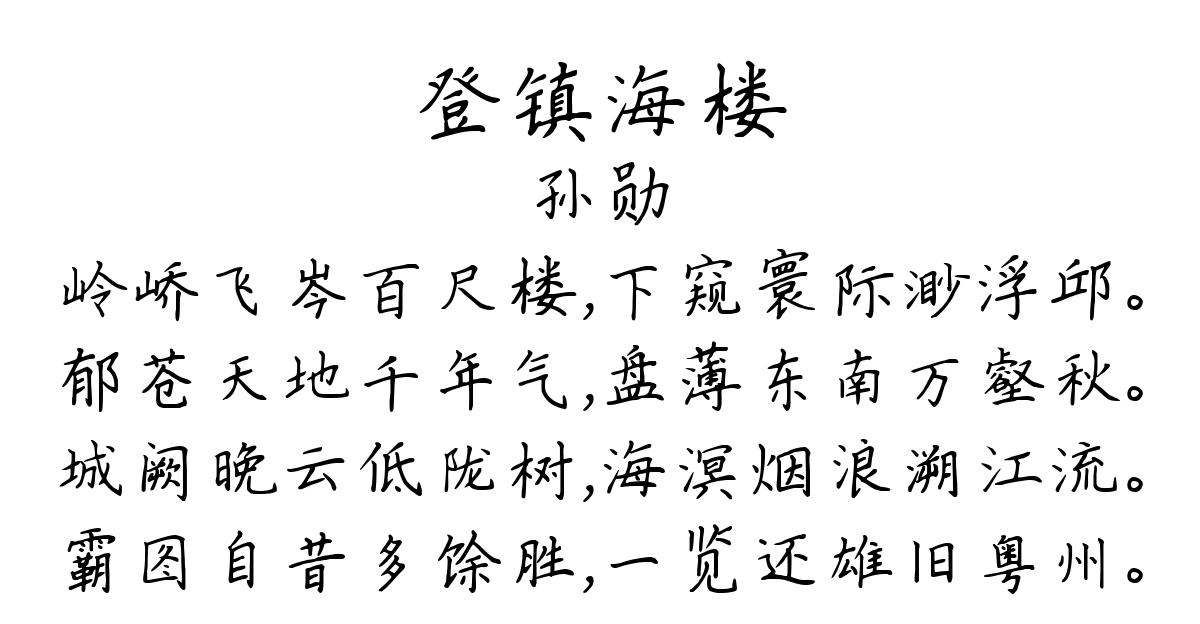 登镇海楼
孙勋
岭峤飞岑百尺楼,下窥寰际渺浮邱。
郁苍天地千年气,盘薄东南万壑秋。
城阙晚云低陇树,海溟烟浪溯江流。
霸图自昔多馀胜,一览还雄旧粤州。